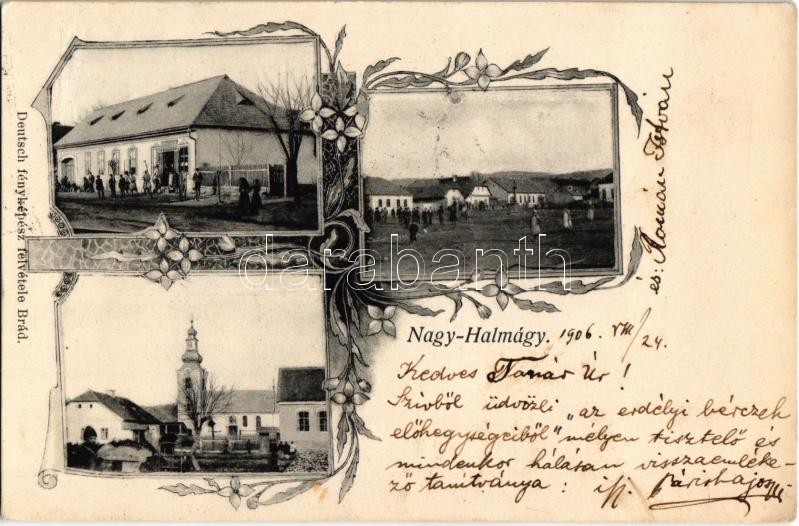 Deutsch fényképész felvétele Brád.
darabanth
Nagy-Halmágy. 1906. VIII/24.
Kedves Tanár Úr!
Szívből üdvözli "az erdélyi bérczek
előhegységeiből" mélyen tisztelő és
mindenkor hálásan visszaemléke-
ző tanítványa: ifj.
és: Román István